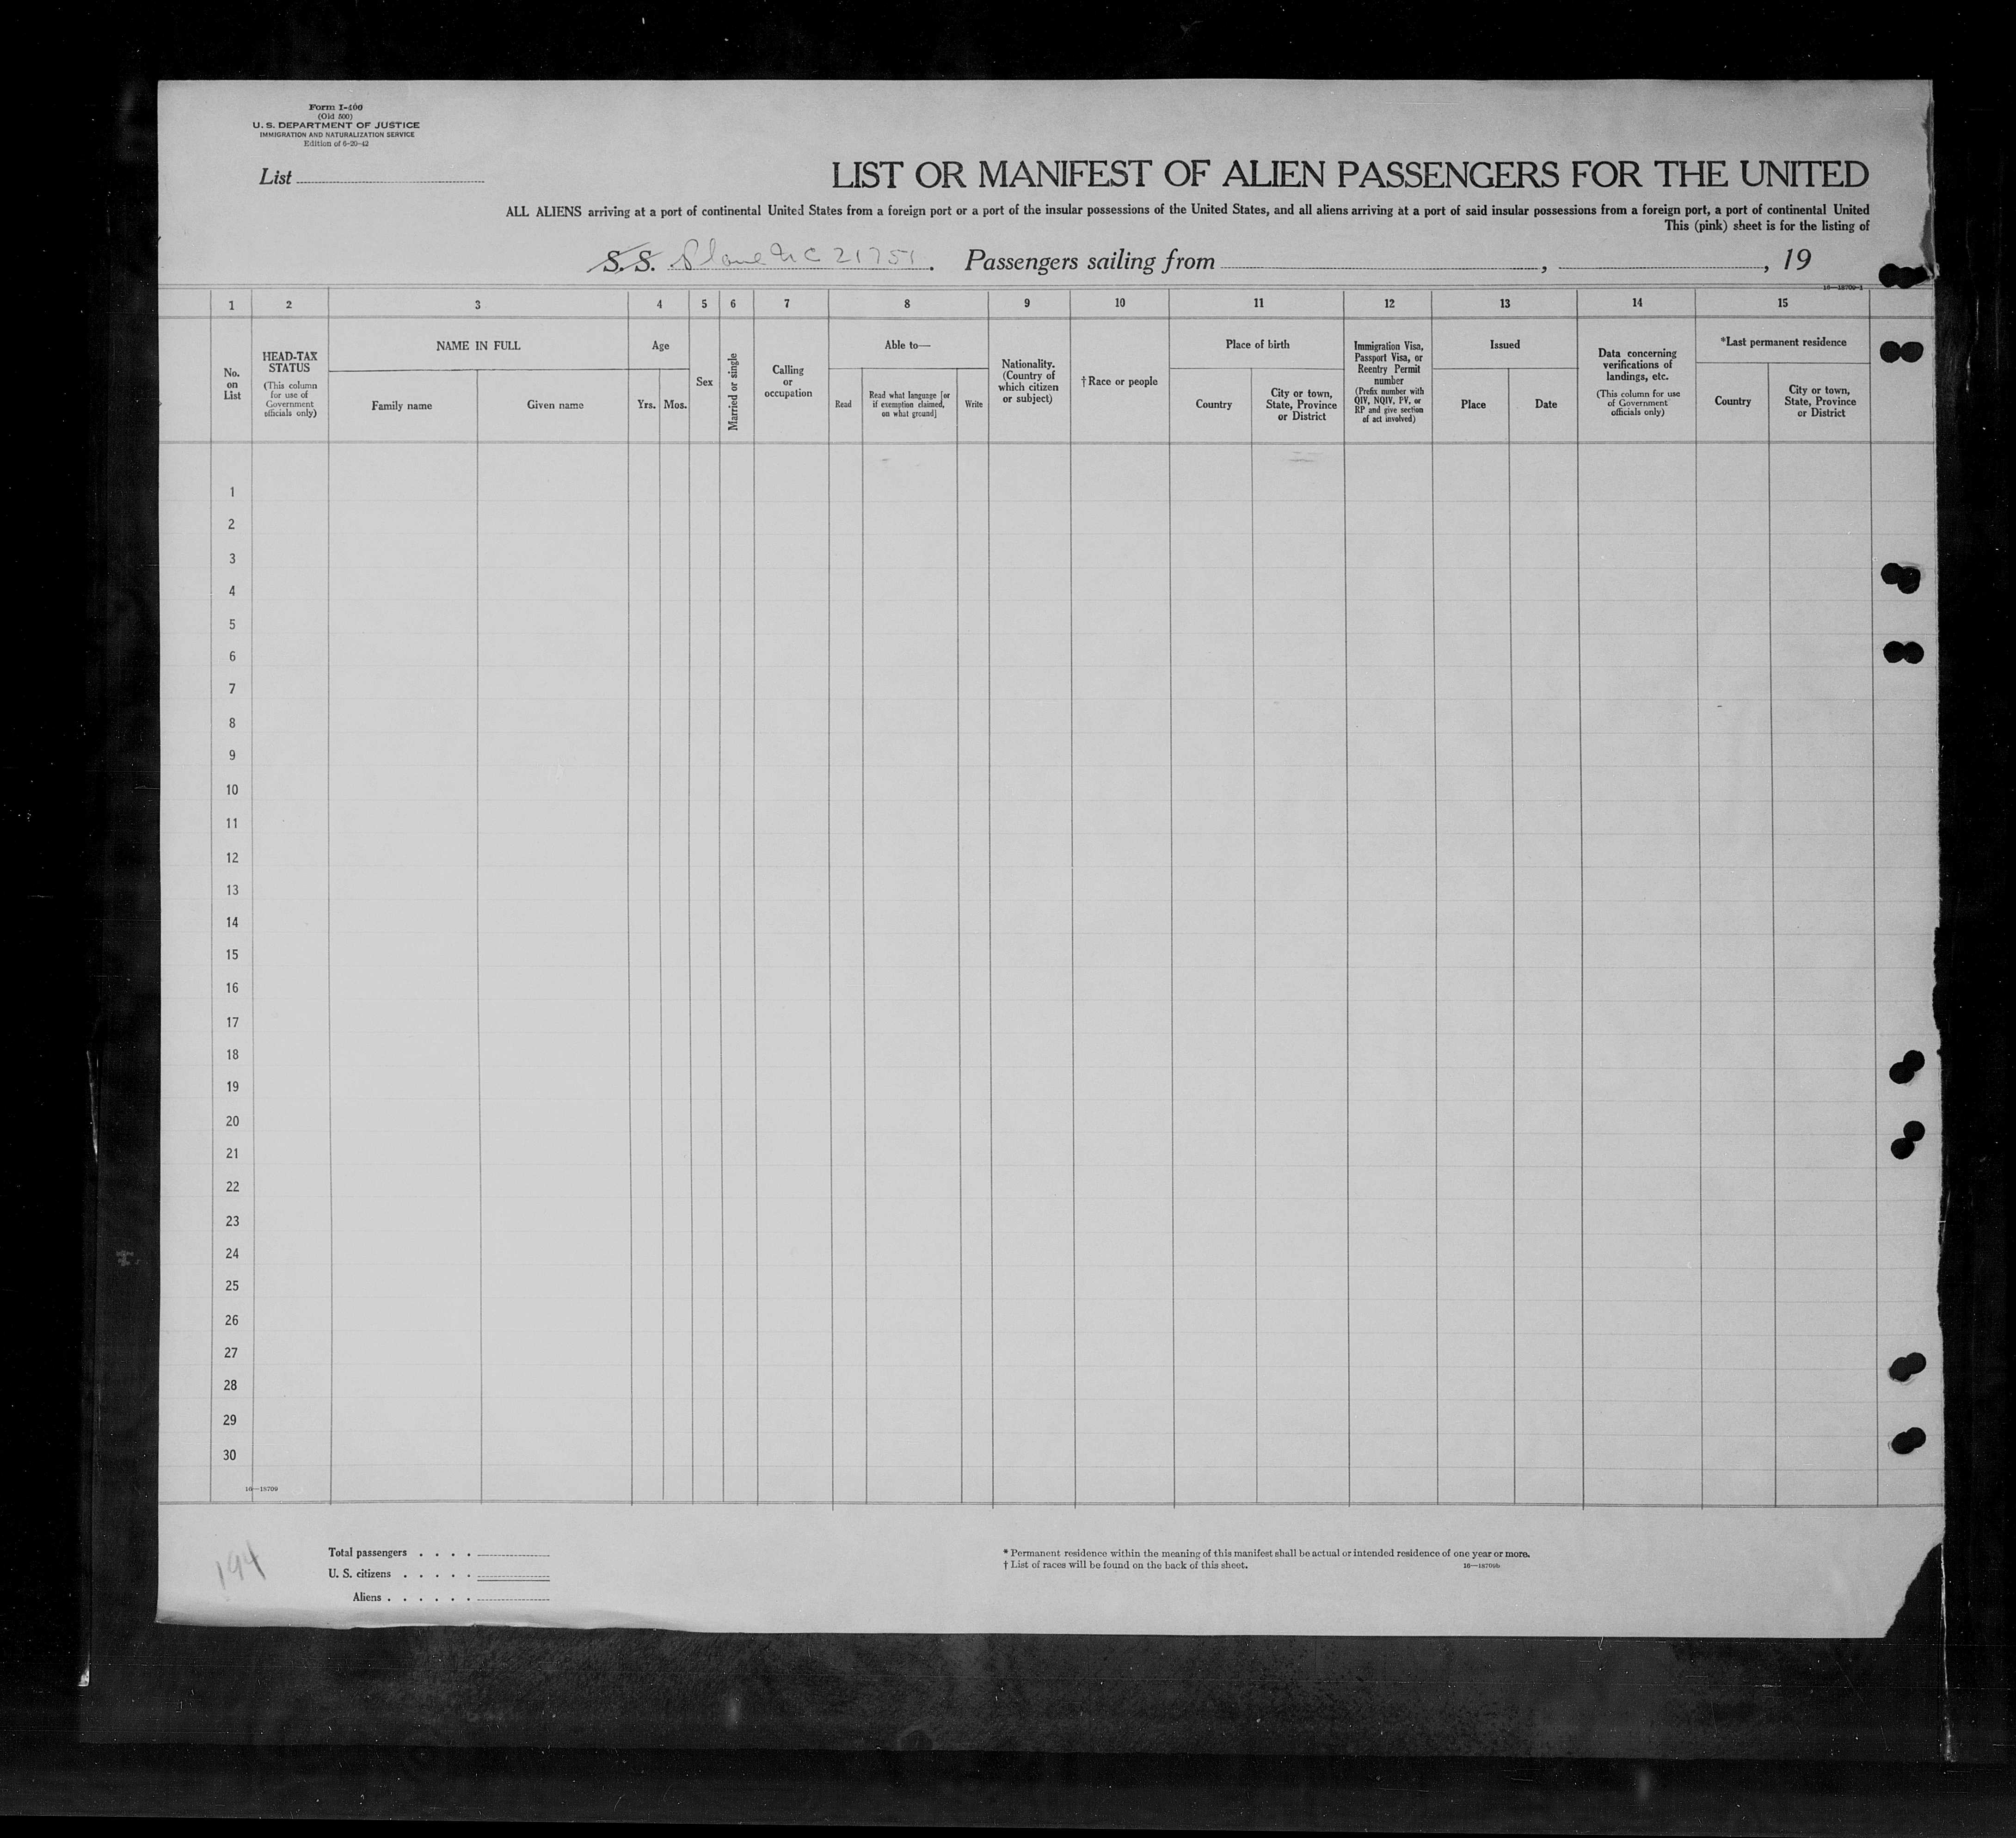 Form I-400
(Old 500)
U. S. DEPARTMENT OF JUSTICE
IMMIGRATION AND NATURALIZATION SERVICE
Edition of 6-20-42
List
LIST OR MANIFEST OF ALIEN PASSENGERS FOR THE UNITED
ALL ALIENS arriving at a port of continental United States from a foreign port or a port of the insular possessions of the United States, and all aliens arriving at a port of said insular possessions from a foreign port, a port of continental United
This (pink) sheet is for the listing of
S.S. Plane NC 21751. Passengers sailing from , , 19
16—18709-1
1 2 3 4 5 6 7 8 9 10 11 12 13 14 15
No.
on
List
HEAD-TAX
STATUS
(This column
for use of
Government
officials only)
NAME IN FULL
Family name
Given name
Age
Yrs. Mos.
Sex
Married or single
Calling
or
occupation
Able to—
Read
Read what language [or
if exemption claimed,
on what ground]
Write
Nationality.
(Country of
which citizen
or subject)
†Race or people
Place of birth
Country
City or town,
State, Province
or District
Immigration Visa,
Passport Visa, or
Reentry Permit
number
(Prefix number with
QIV, NQIV, PV, or
RP and give section
of act involved)
Issued
Place
Date
Data concerning
verifications of
landings, etc.
(This column for use
of Government
officials only)
*Last permanent residence
Country
City or town,
State, Province
or District
1
2
3
4
5
6
7
8
9
10
11
12
13
14
15
16
17
18
19
20
21
22
23
24
25
26
27
28
29
30
16—18709
194
Total passengers . . . .
U. S. citizens . . . . .
Aliens . . . . . .
* Permanent residence within the meaning of this manifest shall be actual or intended residence of one year or more.
† List of races will be found on the back of this sheet.
16—18709b